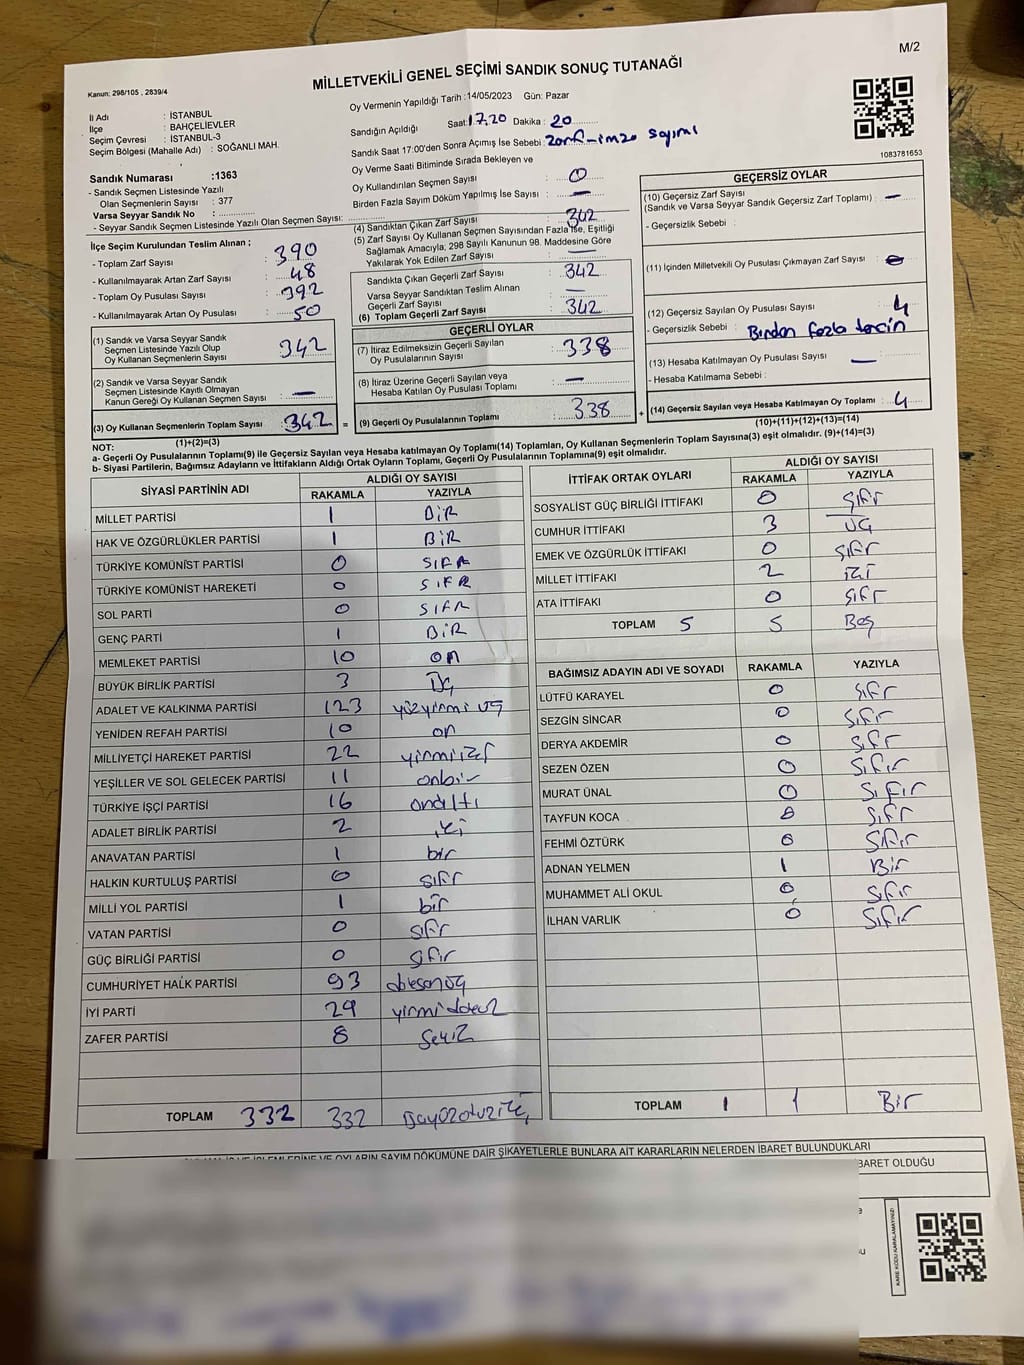 M/2
MİLLETVEKİLİ GENEL SEÇİMİ SANDIK SONUÇ TUTANAĞI
Kanun: 298/105 , 2839/4
İl Adı : İSTANBUL
İlçe : BAHÇELİEVLER
Seçim Çevresi : İSTANBUL-3
Seçim Bölgesi (Mahalle Adı) : SOĞANLI MAH.
Oy Vermenin Yapıldığı Tarih :14/05/2023 Gün: Pazar
Sandığın Açıldığı Saat: 17.20 Dakika : 20
Sandık Saat 17:00'den Sonra Açımış İse Sebebi : Zarf-imza sayımı
Oy Verme Saati Bitiminde Sırada Bekleyen ve
Oy Kullandırılan Seçmen Sayısı : 0
Birden Fazla Sayım Döküm Yapılmış İse Sayısı : —
1083781653
Sandık Numarası :1363
- Sandık Seçmen Listesinde Yazılı
Olan Seçmenlerin Sayısı : 377
Varsa Seyyar Sandık No :
- Seyyar Sandık Seçmen Listesinde Yazılı Olan Seçmen Sayısı:
İlçe Seçim Kurulundan Teslim Alınan ;
- Toplam Zarf Sayısı : 390
- Kullanılmayarak Artan Zarf Sayısı : 48
- Toplam Oy Pusulası Sayısı : 392
- Kullanılmayarak Artan Oy Pusulası : 50
(1) Sandık ve Varsa Seyyar Sandık
Seçmen Listesinde Yazılı Olup
Oy Kullanan Seçmenlerin Sayısı : 342
(2) Sandık ve Varsa Seyyar Sandık
Seçmen Listesinde Kayıtlı Olmayan
Kanun Gereği Oy Kullanan Seçmen Sayısı : —
(3) Oy Kullanan Seçmenlerin Toplam Sayısı : 342
(1)+(2)=(3)
(4) Sandıktan Çıkan Zarf Sayısı : 342
(5) Zarf Sayısı Oy Kullanan Seçmen Sayısından Fazla İse, Eşitliği
Sağlamak Amacıyla; 298 Sayılı Kanunun 98. Maddesine Göre
Yakılarak Yok Edilen Zarf Sayısı : —
Sandıkta Çıkan Geçerli Zarf Sayısı : 342
Varsa Seyyar Sandıktan Teslim Alınan
Geçerli Zarf Sayısı : —
(6) Toplam Geçerli Zarf Sayısı : 342
GEÇERLİ OYLAR
(7) İtiraz Edilmeksizin Geçerli Sayılan
Oy Pusulalarının Sayısı : 338
(8) İtiraz Üzerine Geçerli Sayılan veya
Hesaba Katılan Oy Pusulası Toplamı : —
= (9) Geçerli Oy Pusulalarının Toplamı : 338 +
GEÇERSİZ OYLAR
(10) Geçersiz Zarf Sayısı
(Sandık ve Varsa Seyyar Sandık Geçersiz Zarf Toplamı) : —
- Geçersizlik Sebebi :
(11) İçinden Milletvekili Oy Pusulası Çıkmayan Zarf Sayısı :
(12) Geçersiz Sayılan Oy Pusulası Sayısı : 4
- Geçersizlik Sebebi : Birden fazla tercin
(13) Hesaba Katılmayan Oy Pusulası Sayısı : —
- Hesaba Katılmama Sebebi :
(14) Geçersiz Sayılan veya Hesaba Katılmayan Oy Toplamı : 4
(10)+(11)+(12)+(13)=(14)
NOT:
a- Geçerli Oy Pusulalarının Toplamı(9) ile Geçersiz Sayılan veya Hesaba katılmayan Oy Toplamı(14) Toplamları, Oy Kullanan Seçmenlerin Toplam Sayısına(3) eşit olmalıdır. (9)+(14)=(3)
b- Siyasi Partilerin, Bağımsız Adayların ve İttifakların Aldığı Ortak Oyların Toplamı, Geçerli Oy Pusulalarının Toplamına(9) eşit olmalıdır.
SİYASİ PARTİNİN ADI ALDIĞI OY SAYISI
RAKAMLA YAZIYLA
MİLLET PARTİSİ 1 BİR
HAK VE ÖZGÜRLÜKLER PARTİSİ 1 BİR
TÜRKİYE KOMÜNİST PARTİSİ 0 SIFR
TÜRKİYE KOMÜNİST HAREKETİ 0 SIFR
SOL PARTİ 0 SIFR
GENÇ PARTİ 1 BİR
MEMLEKET PARTİSİ 10 on
BÜYÜK BİRLİK PARTİSİ 3 ÜÇ
ADALET VE KALKINMA PARTİSİ 123 yüzyirmi üç
YENİDEN REFAH PARTİSİ 10 on
MİLLİYETÇİ HAREKET PARTİSİ 22 yirmiiki
YEŞİLLER VE SOL GELECEK PARTİSİ 11 onbir
TÜRKİYE İŞÇİ PARTİSİ 16 onaltı
ADALET BİRLİK PARTİSİ 2 iki
ANAVATAN PARTİSİ 1 bir
HALKIN KURTULUŞ PARTİSİ 0 sıfr
MİLLİ YOL PARTİSİ 1 bir
VATAN PARTİSİ 0 sıfr
GÜÇ BİRLİĞİ PARTİSİ 0 sıfır
CUMHURİYET HALK PARTİSİ 93
İYİ PARTİ 29
ZAFER PARTİSİ 8 Sekiz
TOPLAM 332 332
İTTİFAK ORTAK OYLARI ALDIĞI OY SAYISI
RAKAMLA YAZIYLA
SOSYALİST GÜÇ BİRLİĞİ İTTİFAKI 0 Sıfr
CUMHUR İTTİFAKI 3 ÜÇ
EMEK VE ÖZGÜRLÜK İTTİFAKI 0 Sıfr
MİLLET İTTİFAKI 2 iki
ATA İTTİFAKI 0 Sıfr
TOPLAM 5 5 Beş
BAĞIMSIZ ADAYIN ADI VE SOYADI RAKAMLA YAZIYLA
LÜTFÜ KARAYEL 0 Sıfr
SEZGİN SİNCAR 0 Sıfr
DERYA AKDEMİR 0 Sıfr
SEZEN ÖZEN 0 Sıfır
MURAT ÜNAL 0 Sıfır
TAYFUN KOCA 0 Sıfr
FEHMİ ÖZTÜRK 0 Sıfır
ADNAN YELMEN 1 Bir
MUHAMMET ALİ OKUL 0 Sıfır
İLHAN VARLIK 0 Sıfır
TOPLAM 1 1 Bir
OYLARIN SAYIM DÖKÜMÜNE DAİR ŞİKAYETLERLE BUNLARA AİT KARARLARIN NELERDEN İBARET BULUNDUKLARI
BARET OLDUĞU
KARE KODU KARALAMAYINIZ!